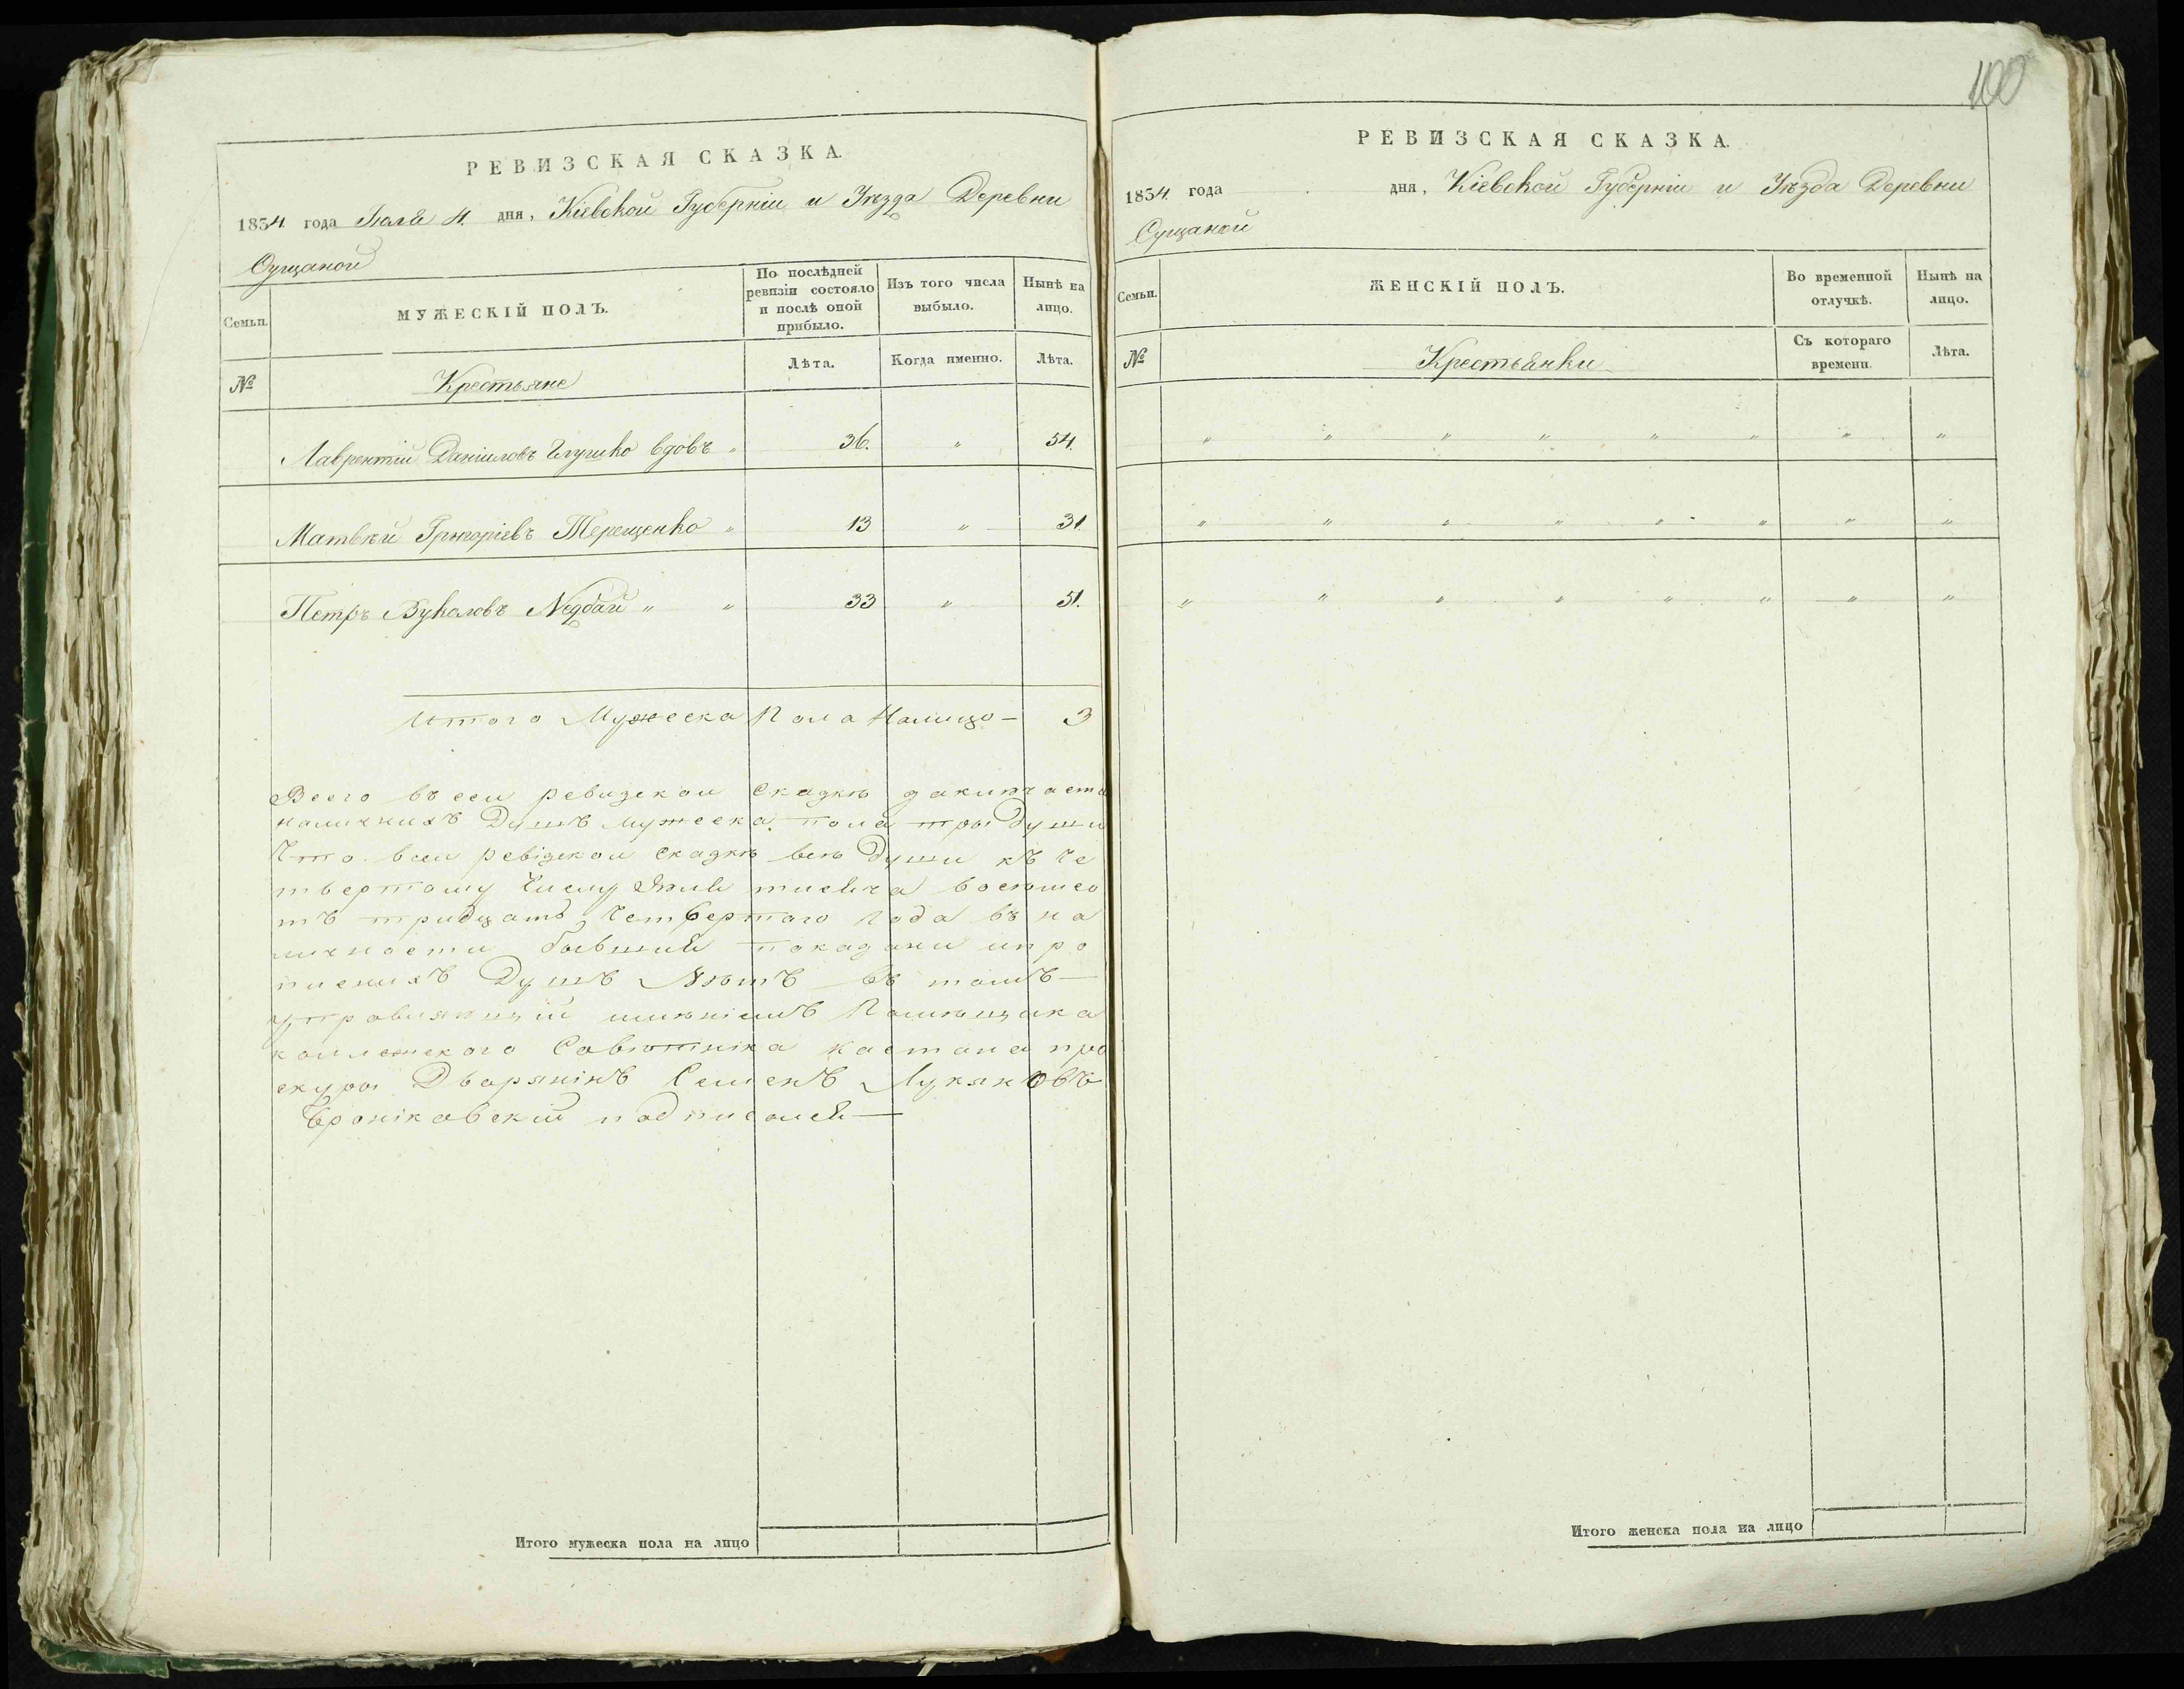 100
РЕВИЗСКАЯ СКАЗКА.
1834 года Іюля 4. дня, Кіевской Губерніи и Уѣзда Деревни
Сущаной
Семьи.
МУЖЕСКІЙ ПОЛЪ.
По послѣдней ревизіи состояло и послѣ оной прибыло.
Изъ того числа выбыло.
Нынѣ на лицо.
№
Крестьяне
Лѣта.
Когда именно.
Лѣта.
Лаврентій Даніиловъ вдовъ " 36. " 54.
Матвѣй Григоріевъ Терещенко " 13 " 31.
Петръ Вуколовъ Недбай " " 33 " 51.
Итого Мужеска Пола Налицо - 3
Всего въ сей ревизской Сказкѣ заключается
наличнихъ Душъ мужеска пола три Души
Что всей ревізской сказкѣ всѣ Души къ че
твертому Числу Юля тисяча восемсо
тъ тридцать Четвертого Года въ на
личности бывшия показани и про
писнихъ Душъ Нѣтъ въ томъ —
Управляющій имѣніемъ Помѣщика
коллежского Совѣтніка каетана про
скуры Дворянінъ Семенъ Лукяновъ
Броніковскій подписался —
Итого мужеска пола на лицо
РЕВИЗСКАЯ СКАЗКА.
1834 года дня, Кіевской Губерніи и Уѣзда Деревни
Сущаной
Семьи.
ЖЕНСКІЙ ПОЛЪ.
Во временной отлучкѣ.
Нынѣ на лицо.
№
Крестьянки
Съ котораго времени.
Лѣта.
" " " " " " " "
" " " " " " " "
" " " " " " " "
Итого женска пола на лицо